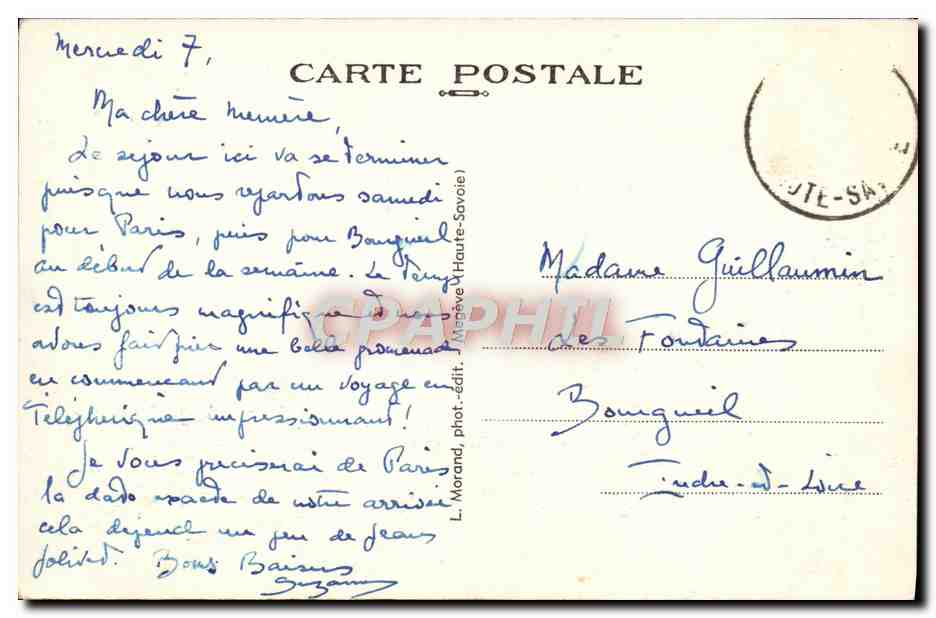 Mercredi 7,
CARTE POSTALE
Ma chère Memère,
Le séjour ici va se terminer
puisque nous repartons samedi
pour Paris, puis pour Bourgueil
au début de la semaine. Le temps
est toujours magnifique et nous
avons fait hier une belle promenade
en commencant par un voyage en
Téléphérique impressionnant!
Je vous preciserai de Paris
la date exacte de notre arrivée
cela depend un peu de Jean
Jolivet. Bons Baisers
Suzanne
L. Morand, phot.-édit. Megève (Haute-Savoie)
CPAPHIL
UTE-SA
Madame Guillaumin
Les Fontaines
Bourgueil
Indre-et-Loire